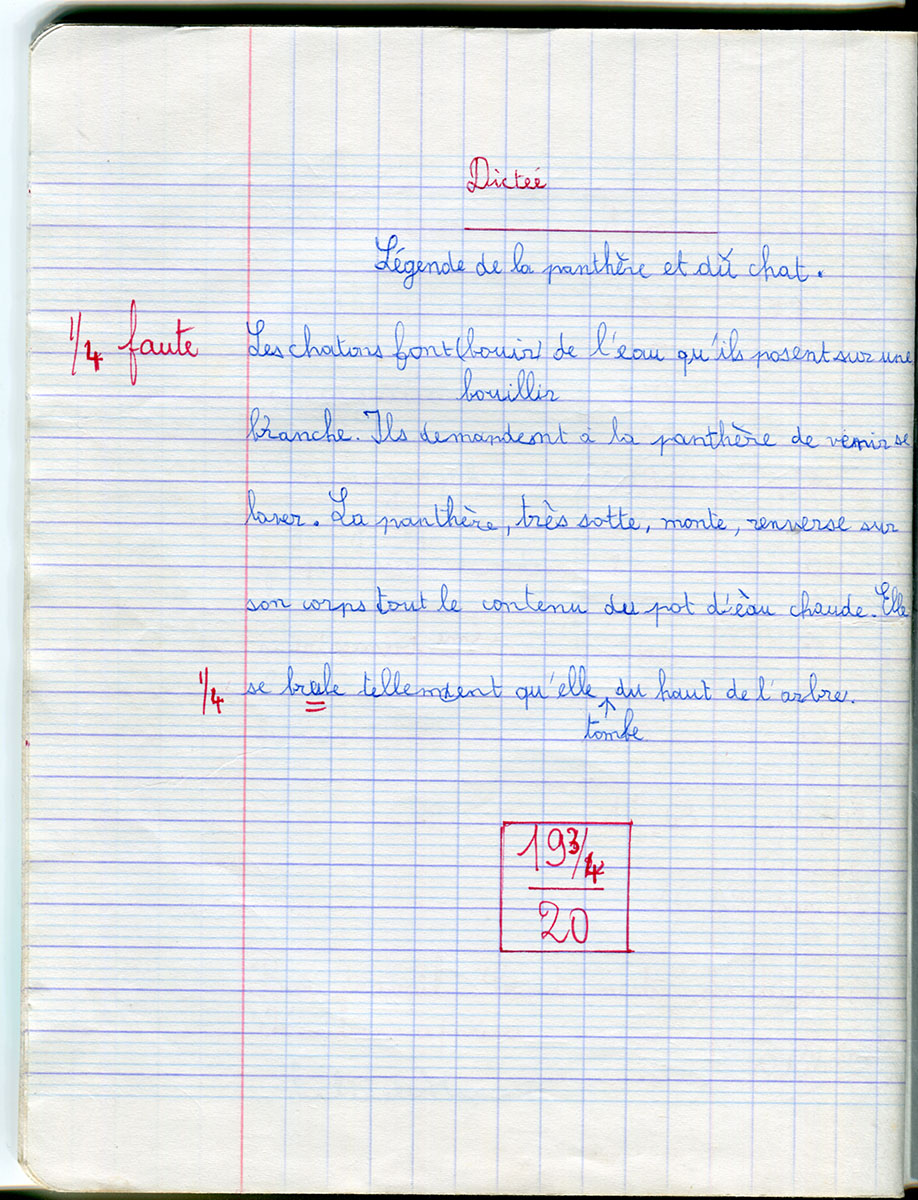 Dicteé
Légende de la panthère et du chat.
1/4 faute Les chatons font (bouir) de l'eau qu'ils posent sur une
bouillir
branche. Ils demandent à la panthère de venir se
laver. La panthère, très sotte, monte, renverse sur
son corps tout le contenu du pot d'èau chaude. Elle
1/4 se brule tellement qu'elle du haut de l'arbre.
↑
tombe
19 3/4
20